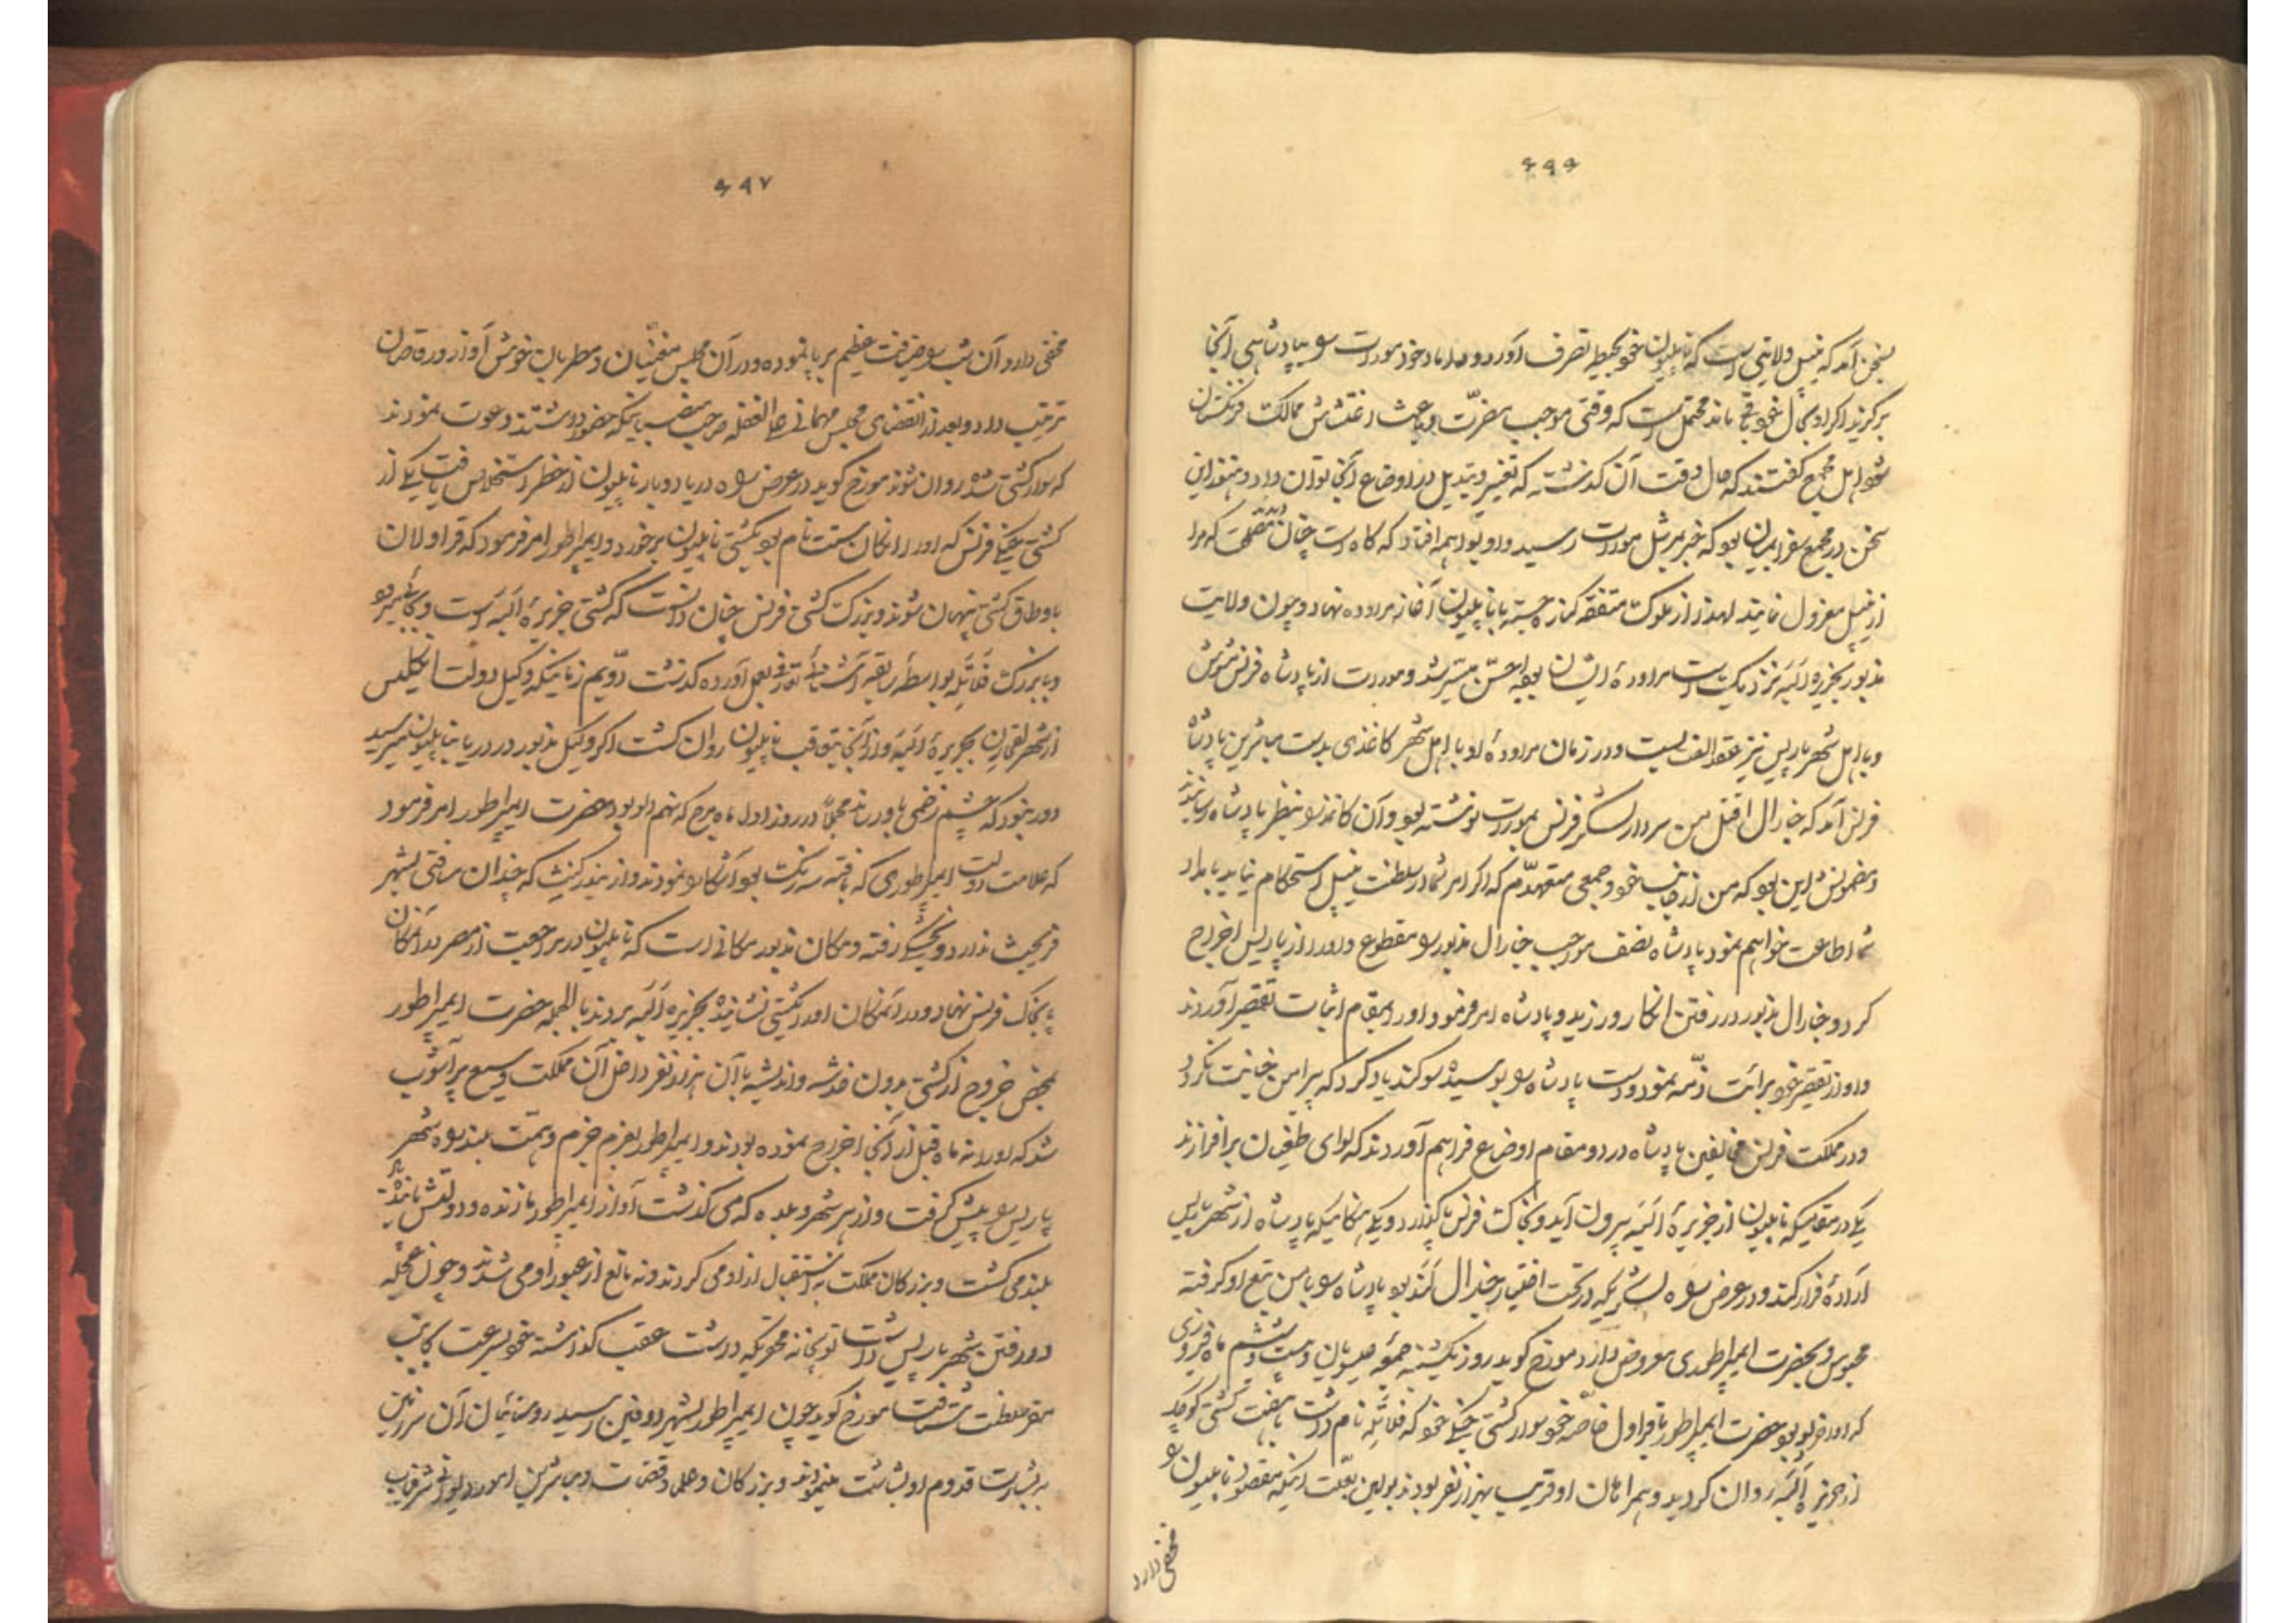 ۶۹۶
بسخن آمد که نیپل ولایتی است که ناپلیون خود بحیطه تصرف آورد و بداماد خود مورات را بپادشاهی آنجا
برگزید اگر او بحال خود باقی ماند محتمل است که وقتی موجب مضرت و باعث اغتشاش ممالک فرنگستان
شود اهل مجمع گفتند که حال وقت آن گذشته که تغییر و تبدیل در اوضاع آنجا توان داد و هنوز این
سخن در مجمع سفرا بمیان بود که خبر بمورات رسید و او را واهمه افتاد که گاه است چنان که مرا
از نیپل معزول نمایند لهذا از ملوک متفقه کناره جسته با ناپلیون آغاز مراوده نهاد و چون ولایت
مذبور بجزیره البه نزدیک است مراودهٔ ایشان بوجه احسن میسر شد و مورات از پادشاه فرنس مشوش
و با اهل شهر پاریس نیز عقد الفت بست و در زمان مراودهٔ او با اهل شهر کاغذی بدست مباشرین پادشاه
فرنس آمد که جنارال اقتل من سردار لشکر فرنس بمورات نوشته بود و آن کاغذ را بنظر پادشاه رسانیدند
و مضمونش این بود که من از جانب خود و جمعی متعهدم که اگر امر شما در سلطنت نیپل استحکام نیابد با مداد
شما اطاعت خواهم نمود پادشاه نصف مواجب جنارال مذبور را مقطوع و او را از پاریس اخراج
کرد و جنارال مذبور در رفتن انکار ورزید و پادشاه امر فرمود او را بمقام اثبات تقصیر آوردند
و او از تقصیر خود برائت ذمه نمود و دست پادشاه را بوسیده سوگند یاد کرد که پیرامن خیانت نگردد
و در مملکت فرنس مخالفین پادشاه در دو مقام اوضاع فراهم آوردند که لوای طغیان برافرازند
یکی در وقتیکه ناپلیون از جزیرهٔ البه بیرون آید و بخاک فرنس پا گذارد و یکی هنگامیکه پادشاه از شهر پاریس
ارادهٔ فرار کند و در عرض راه لشکریکه در تحت اختیار جنرال کند بود پادشاه را با من تبع او گرفته
محبوس و بحضرت ایمپراطوری معروض دارد مورخ گوید روز یکشنبه جمعه عیسویان و بیست و ششم ماه فروری
که اواخر دلو بود حضرت ایمپراطور با قراول خاصه خود سوار کشتی جنگی خود که فلاتیله نام داشت با هفت کشتی کوچک
از جزیره البه روان گردید و همراهان او قریب بهزار نفر بودند بولین بعلت اینکه مقصود ناپلیون را
مخفی دارد
۶۹۷
مخفی دارد آن شب را ضیافت عظیم برپا نموده و در آن مجلس مغنیان و مطربان خوش آواز و رقاصان
ترتیب داد و بعد از انقضای مجلس مهمانی علی الغفله صاحب منصبانیکه حضور داشتند دعوت نمودند
که سوار کشتی شده روان شوند مورخ گوید در عرض راه دریا دو بار ناپلیون از خطر استخلاص یافت یکی از
کشتی جنگی فرنس که او را انکان ستنت نام بود بکشتی ناپلیون برخورد و ایمپراطور امر فرمود که قراولان
باوطاق کشتی پنهان شوند و بزرگ کشتی فرنس چنان دانست که کشتی جزیرهٔ البه است و بجایی میرود
و با بزرگ فلاتیله بواسطه سابقه آشنائی تعارف بعمل آورده گذشت دویم زمانیکه وکیل دولت انگلیس
از شهر لقهارن بجزیرهٔ البه و از آنجا بتعاقب ناپلیون روان گشت اگر وکیل مذبور در دریا بناپلیون میرسید
دور نبود که چشم زخمی باو رساند مجملا در روز اول ماه مرج که نهم دلو بود حضرت ایمپراطور امر فرمود
که علامت دولت ایمپراطوری که بافته سه رنگ بود آشکارا نمودند و از بندر کنث که چندان مسافتی بشهر
فریجیث ندارد بخشکی رفته و مکان مذبور مکانی است که ناپلیون در مراجعت از مصر در آنمکان
پا بخاک فرنس نهاد و در آنمکان او را بکشتی نشانیده بجزیره البه بردند بالجمله حضرت ایمپراطور
بمحض خروج از کشتی بدون خدشه و اندیشه با آن هزار نفر داخل آن مملکت وسیع پرآشوب
شد که او را نه ماه قبل از آنجا اخراج نموده بودند و ایمپراطور بعزم جزم و همت بلند راه شهر
پاریس را پیش گرفت و از هر شهر و بلده که می گذشت آواز ایمپراطور ما زنده و دولتش پاینده باد
بلند می گشت و بزرگان مملکت نه استقبال از او می کردند و نه مانع از عبور او می شدند و چون عجله
در رفتن شهر پاریس داشت توپخانه مختصریکه داشت عقب گذاشته خود بسرعت بجانب
مقر سلطنت شتافت مورخ گوید چون ایمپراطور بشهر دوفین رسید روستائیان آن سرزمین
به بشارت قدوم او بشاشت مینمودند و بزرگان و علما و قضات و مباشرین امور دیوانی شرفیاب